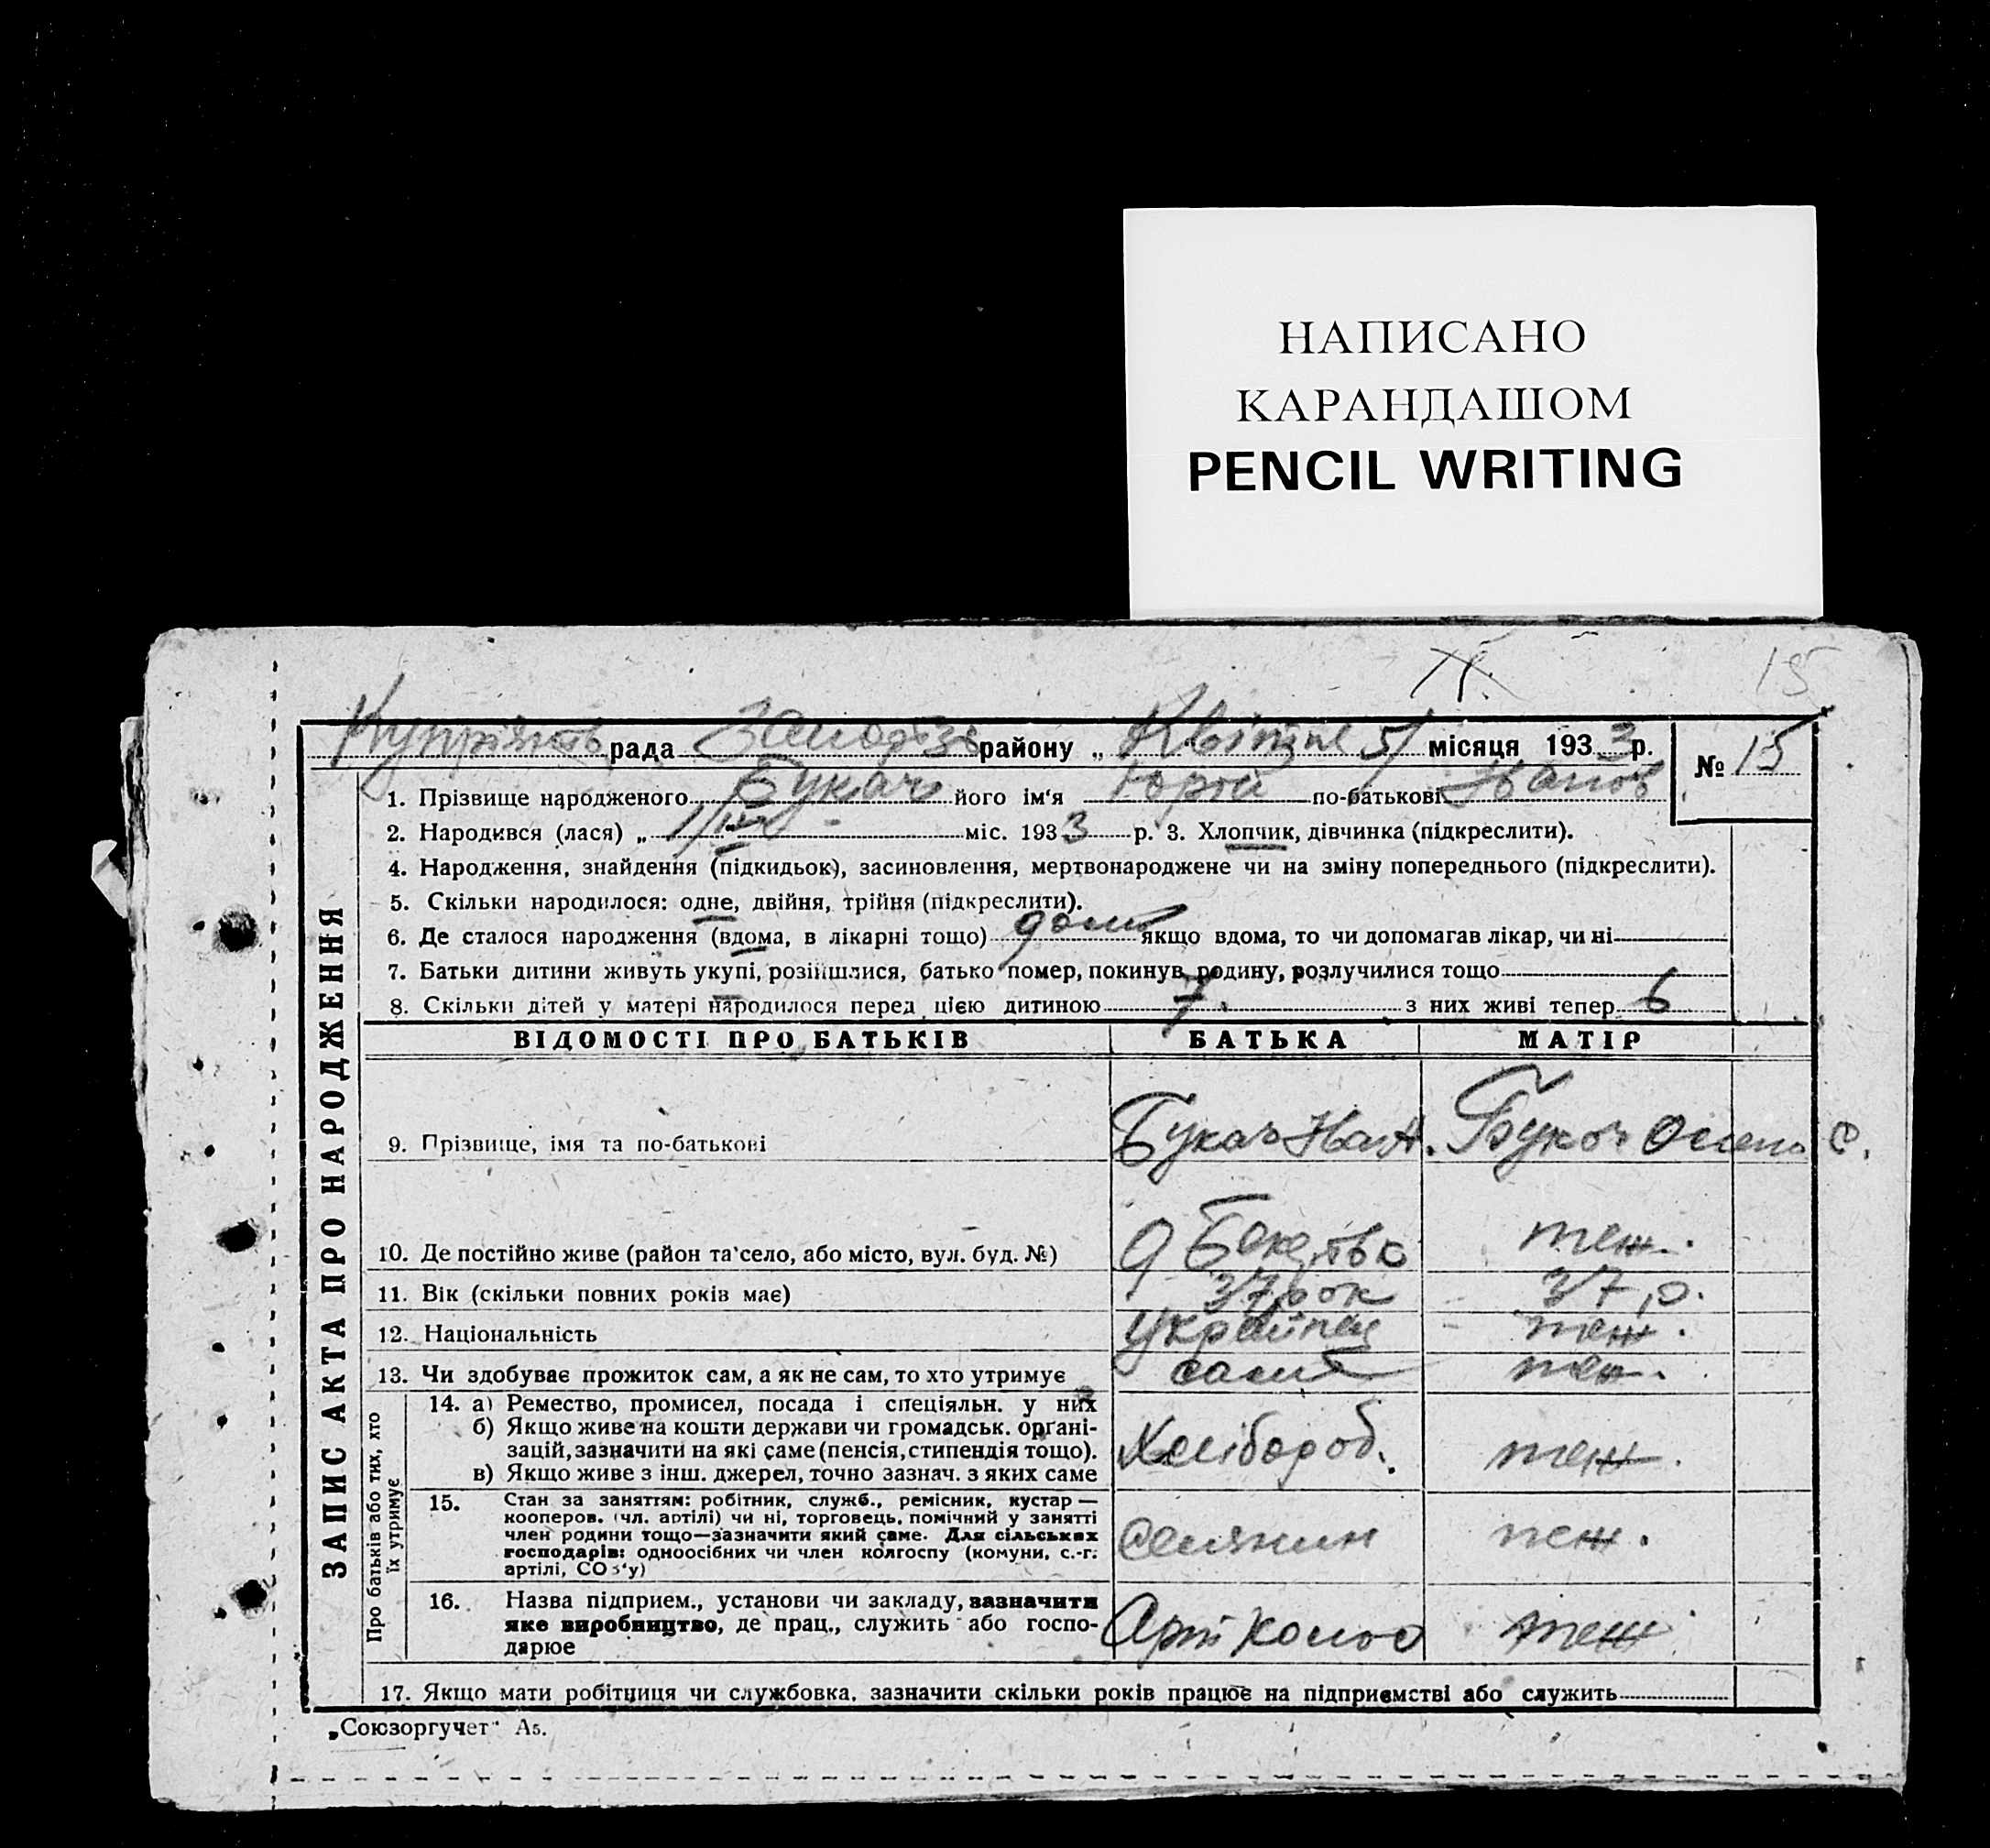 НАПИСАНО
КАРАНДАШОМ
PENCIL WRITING
15
рада району „ Квітня 5 місяця 1933 р. № 15
1. Прізвище народженого Букач його ім'я Юрій по-батькові Іванов
2. Народився (лася) „ 1/IV міс. 1933 р. 3. Хлопчик, дівчинка (підкреслити).
4. Народження, знайдення (підкидьок), засиновлення, мертвонароджене чи на зміну попереднього (підкреслити).
5. Скільки народилося: одне, двійня, трійня (підкреслити).
6. Де сталося народження (вдома, в лікарні тощо) дома якщо вдома, то чи допомагав лікар, чи ні
7. Батьки дитини живуть укупі, розійшлися, батько помер, покинув родину, розлучилися тощо
8. Скільки дітей у матері народилося перед цією дитиною 7. з них живі тепер 6
ЗАПИС АКТА ПРО НАРОДЖЕННЯ
ВІДОМОСТІ ПРО БАТЬКІВ БАТЬКА МАТІР
9. Прізвище, імя та по-батькові Букач Іван. Букач Олена С.
10. Де постійно живе (район та село, або місто, вул. буд. №) теж.
11. Вік (скільки повних років має) 37 рок 37 р.
12. Національність Українец теж.
13. Чи здобуває прожиток сам, а як не сам, то хто утримує сам теж.
Про батьків або тих, хто
їх утримує
14. а) Ремество, промисел, посада і спеціяльн. у них
б) Якщо живе на кошти держави чи громадськ. органі-
зацій, зазначити на які саме (пенсія, стипендія тощо).
в) Якщо живе з інш. джерел, точно зазнач. з яких саме
Хлібороб. теж.
15. Стан за заняттям: робітник, служб., ремісник, кустар —
кооперов. (чл. артілі) чи ні, торговець, помічний у занятті
член родини тощо—зазначити який саме. Для сільських
господарів: одноосібних чи член колгоспу (комуни, с.-г.
артілі, СОЗ'у)
Селянин теж.
16. Назва підприєм., установи чи закладу, зазначити
яке виробництво, де прац., служить або госпо-
дарює
Арт теж
17. Якщо мати робітниця чи службовка, зазначити скільки років працює на підприємстві або служить
„Союзоргучет" А5.